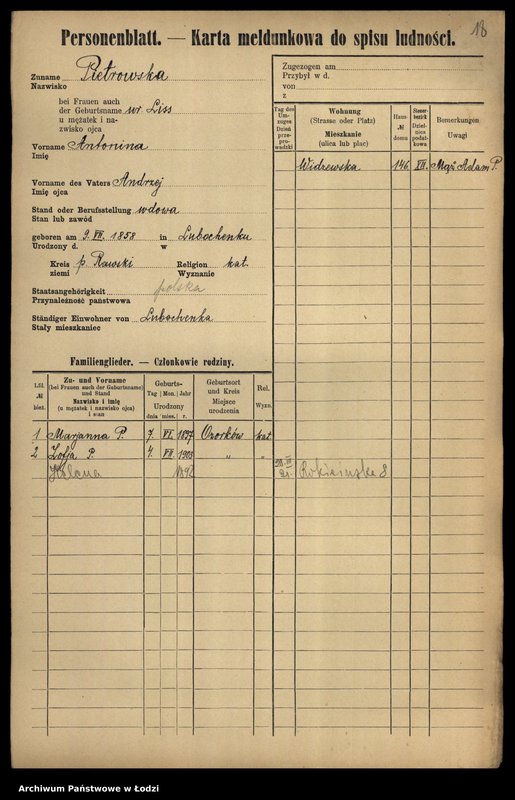 18
Personenblatt. — Karta meldunkowa do spisu ludności.
Zuname Pietrowska
Nazwisko
bei Frauen auch
der Geburtsname ur. Liss
u mężatek i na-
zwisko ojca
Vorname Antonina
Imię
Vorname des Vaters Andrzej
Imię ojca
Stand oder Berufsstellung wdowa
Stan lub zawód
geboren am 9. VII. 1858 in Lubochenku
Urodzony d. w
Kreis p. Rawski Religion kat.
ziemi Wyznanie
Staatsangehörigkeit polska
Przynależność państwowa
Ständiger Einwohner von Lubochenka
Stały mieszkaniec
Zugezogen am
Przybył w d.
von
z
Tag des Um-zuges Dzień prze-pro-wadzki
Wohnung
(Strasse oder Platz)
Mieszkanie
(ulica lub plac)
Haus-№ domu
Steuer-bezirk Dziel-nica podat-kowa
Bemerkungen
Uwagi
Widzewska 146 VII. Mąż Adam P.
Familienglieder. — Członkowie rodziny.
Lfd. № bież.
Zu- und Vorname
(bei Frauen auch der Geburtsname)
und Stand
Nazwisko i imię
(u mężatek i nazwisko ojca)
i stan
Geburts-
Tag Mon. Jahr
Urodzony
dnia mies. r.
Geburtsort
und Kreis
Miejsce
urodzenia
Rel.
Wyzn.
1 Marjanna P. 7. VI. 1897 Ozorków kat.
2 Zofja P. 4. VII. 1903 " "
Helena
Rokicińska 8
Archiwum Państwowe w Łodzi